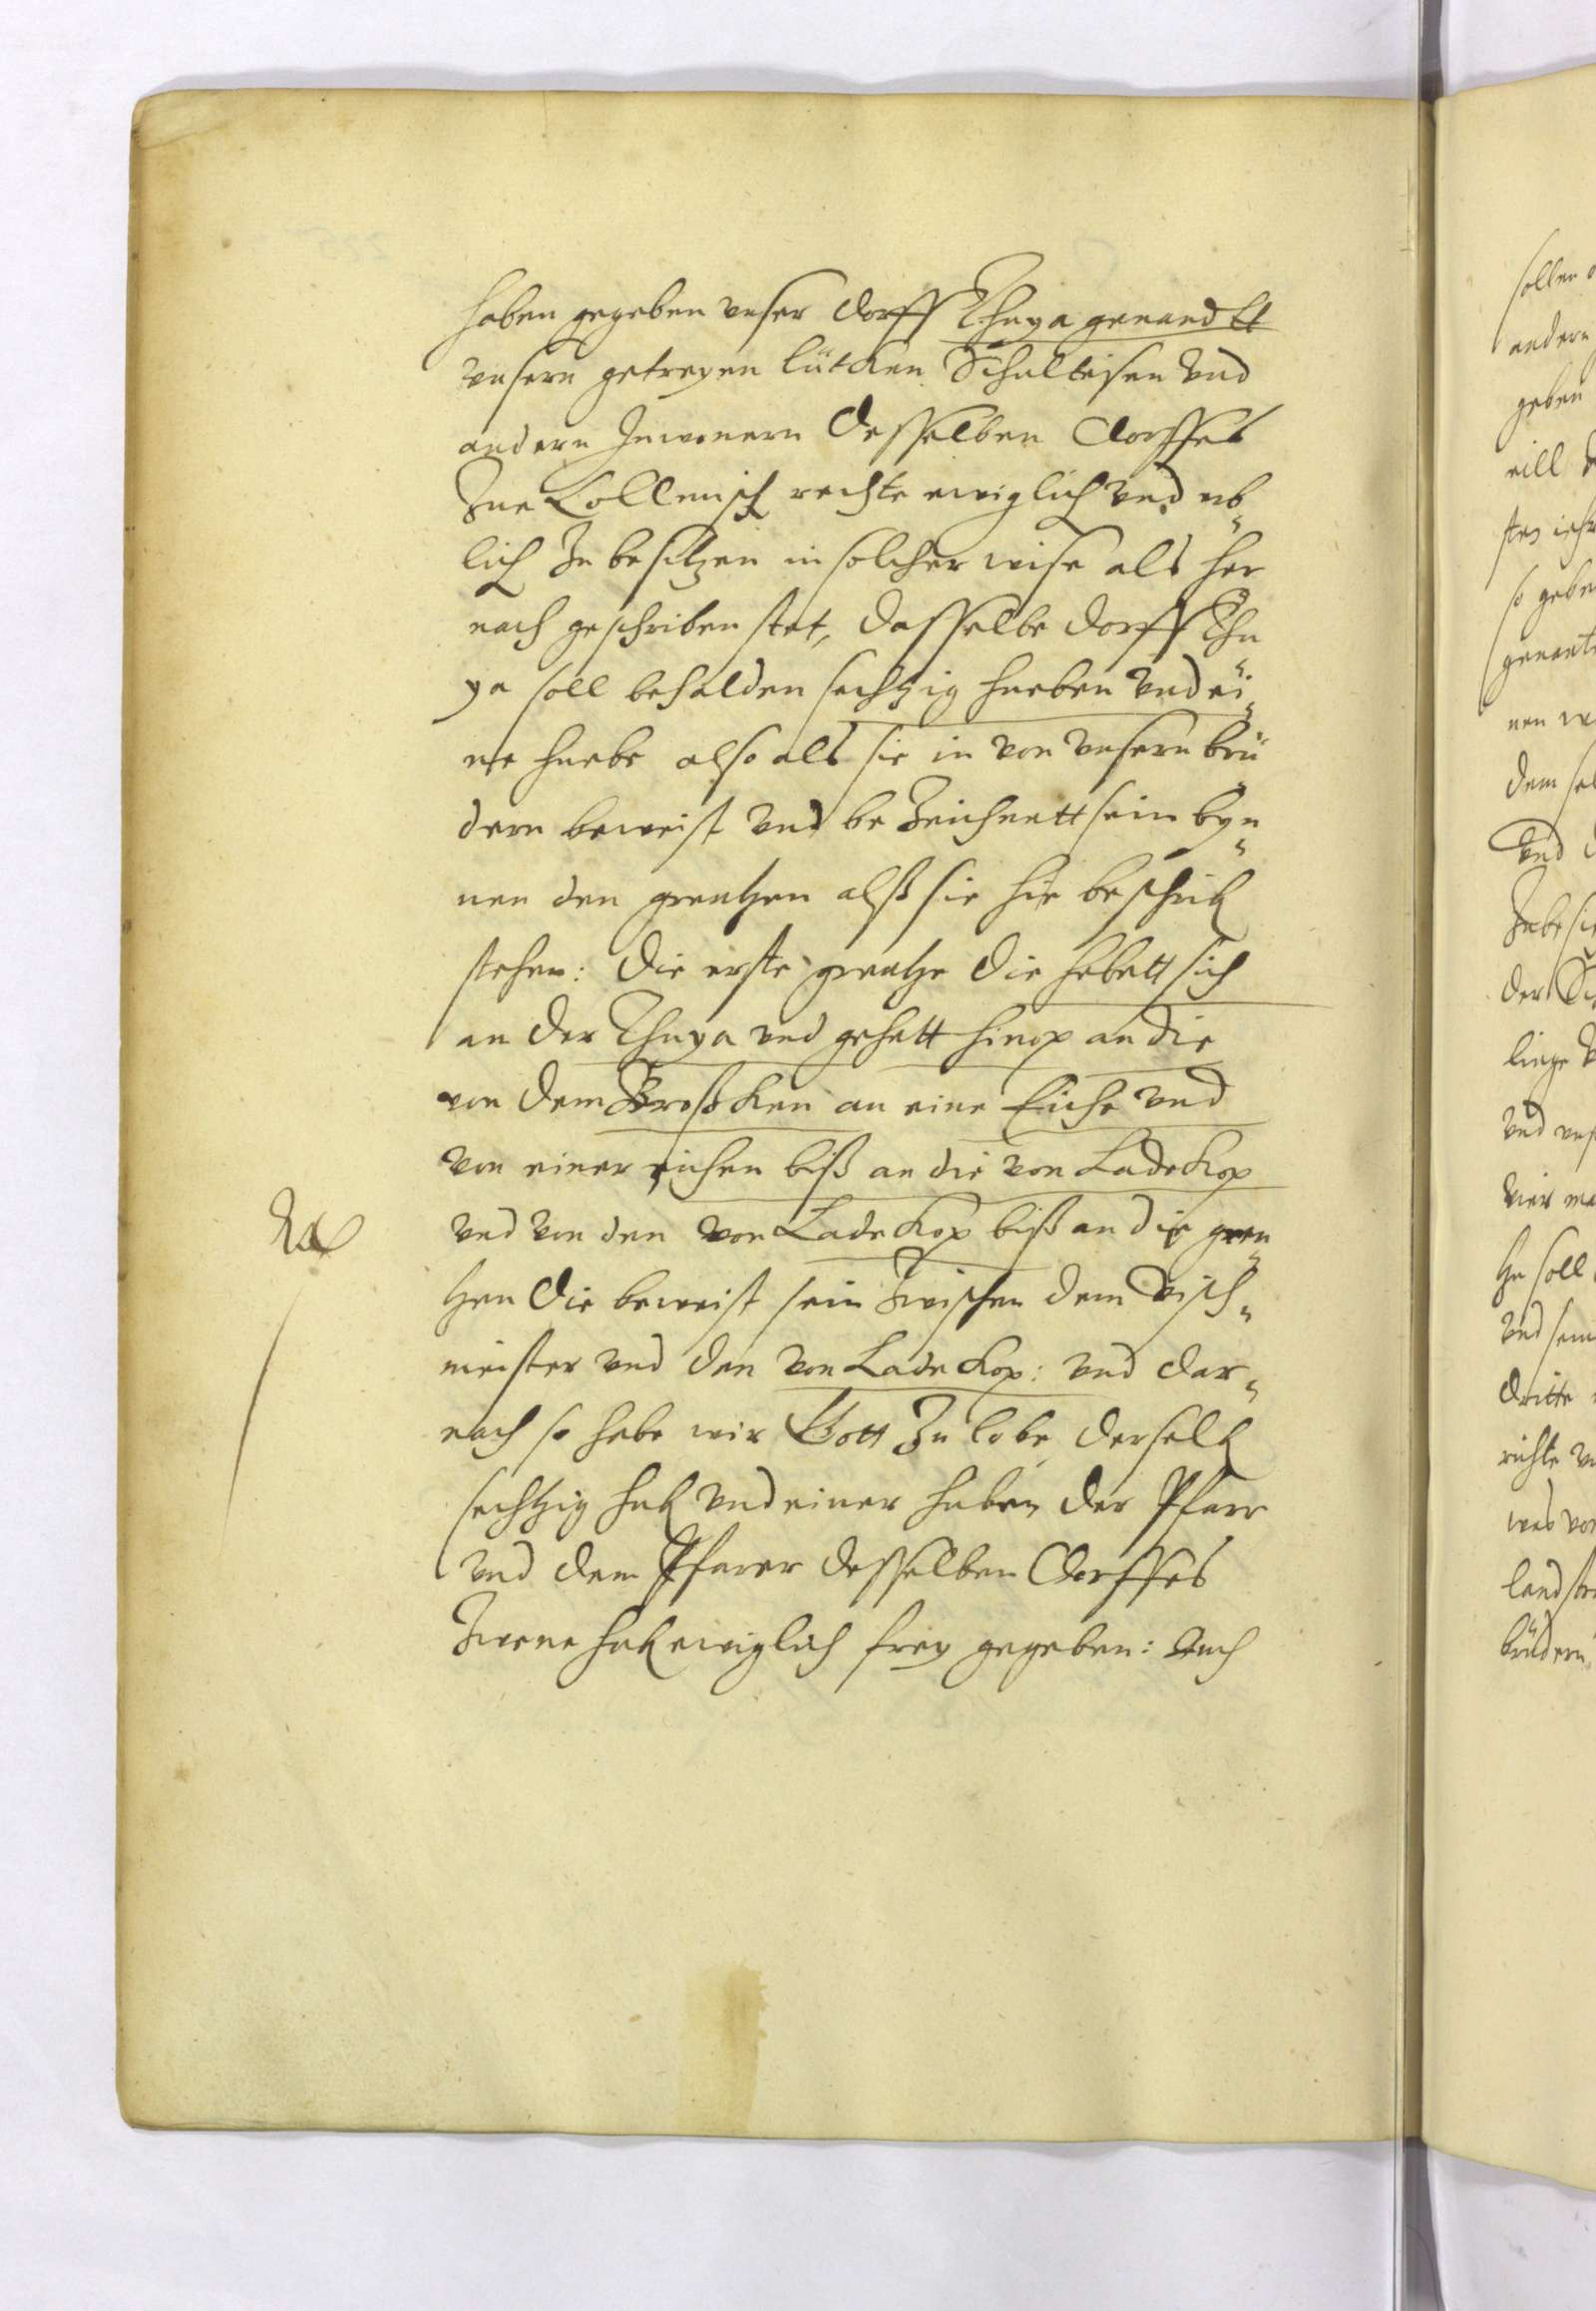 haben gegeben unser dorff Thuya genandtt
unsern getreyen lütcken Schulteisen und
andern Inwonern desselben dorffes
Zue Collmisch rechte ewiglich und erb„
lich Zu besitzen in solcher weise als her
nach geschriben stet, dasselbe dorff Thu„
ya soll behalden sechtzig hueben und ei„
ne huebe also als sie in von unsern brü„
dern beweist und be Zeichnett sein byn„
nen den grentzen alß sie hie beschrieb
stehen: die erste grentze die hebett sich
an der Thuya und gehett hinop an die
von dem Broßken an eine Eiche und
von einer eichen biß an die von Ladekop
und von den von Ladekop biß an die gren„
tzen die beweist sein Zwischen dem Visch„
meister und den von Ladekop: und dar„
nach so habe wir Gott Zu lobe derselb
sechtzig hub und einer huben der Pfarr
und dem Pfarer desselben dorffes
Zwene hub ewiglich frey gegeben: Auch
sollen
andern
geben
so geben
genante
dem
und
der
und
soll
und
dritte
richte
was von
brüdern